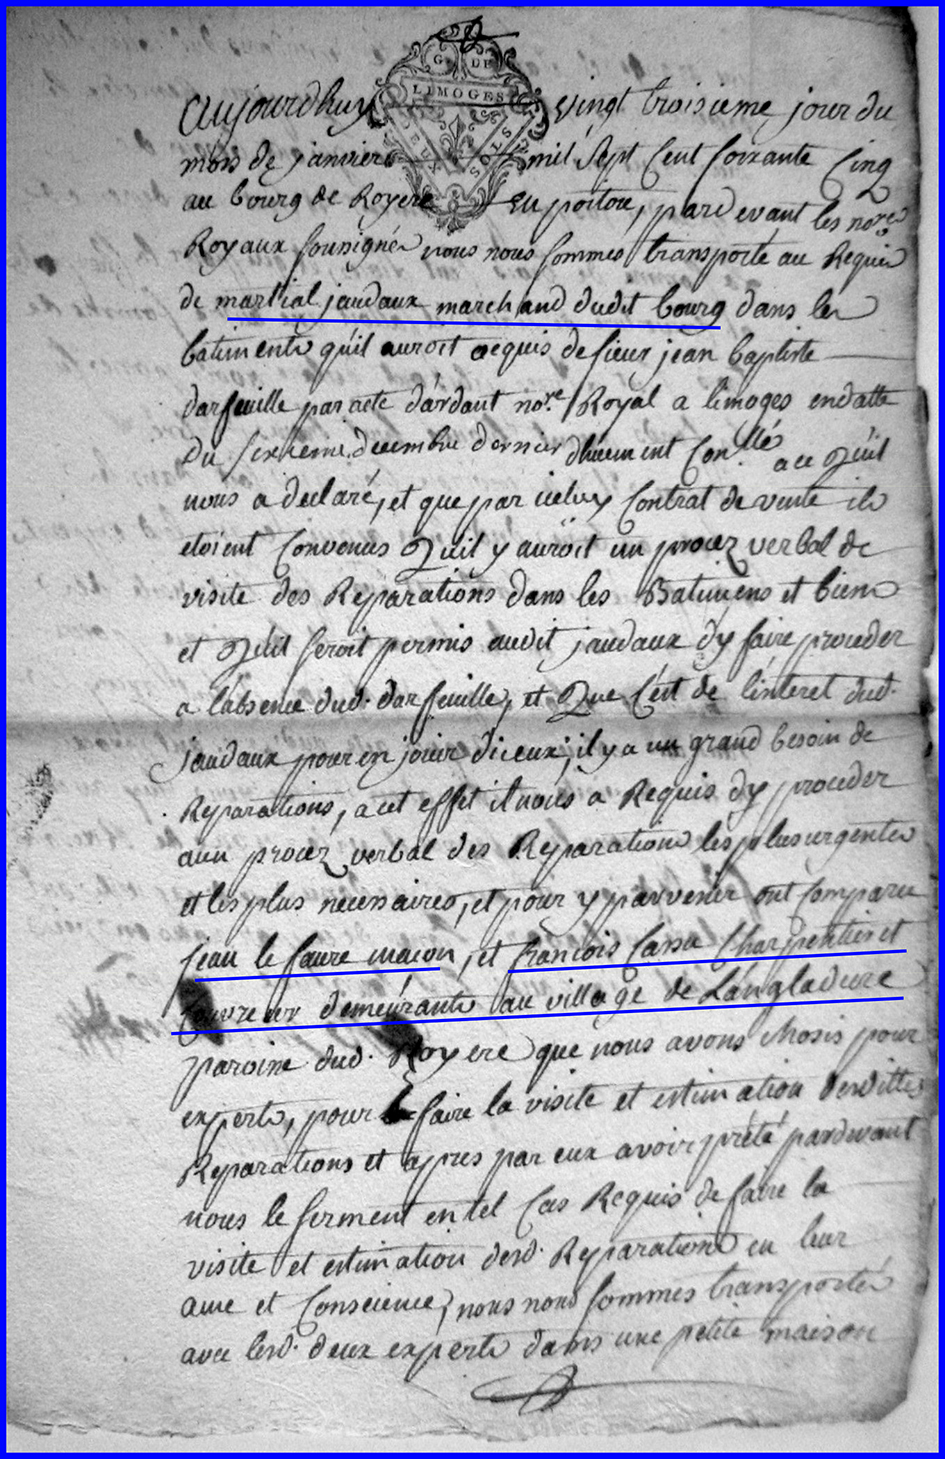 G. DE
LIMOGES
DEUX SOLS
aujourdhuy vingt troisieme jour du
mois de janvier mil sept cent soixante cinq
au bourg de Royere en poitou, pardevant les nores
Royaux sousignés nous nous sommes transporté au Requis
de martial jaudaux marchand dudit bourg dans les
batiments qu'il auroit acquis de sieur jean baptiste
darfeuille par acte d'ardant nore. Royal a limoges endatte
du sixieme decembre dernier dhuement Conllé a ce Quil
nous a declaré, et que par iceluy Contrat de vente ils
etoient Convenus Quil y auroit un procez verbal de
visite des Reparations dans les Batimens et biens
et Quil seroit permis audit jaudaux dy faire proceder
a labsence dud. darfeuille, et Que C'est de l'interet dud.
jaudaux pour en jouir diceux, il y a un grand besoin de
Reparations, a cet effet il nous a Requis dy proceder
aun procez verbal des Reparations les plus urgentes
et les plus necessaires, et pour y parvenir ont Comparu
jean le faure macon, et francois Cassa Charpentier et
Couvreur demeurants au village de L'angladure
paroisse dud. Royere que nous avons choisis pour
experts, pour faire la visite et estimation desdittes
Reparations et apres par eux avoir prété pardevant
nous le serment en tel Cas Requis de faire la
visite et estimation desd. Reparations en leur
ame et Conscience, nous nous sommes transportés
avec lesd. deux experts dans une petite maison